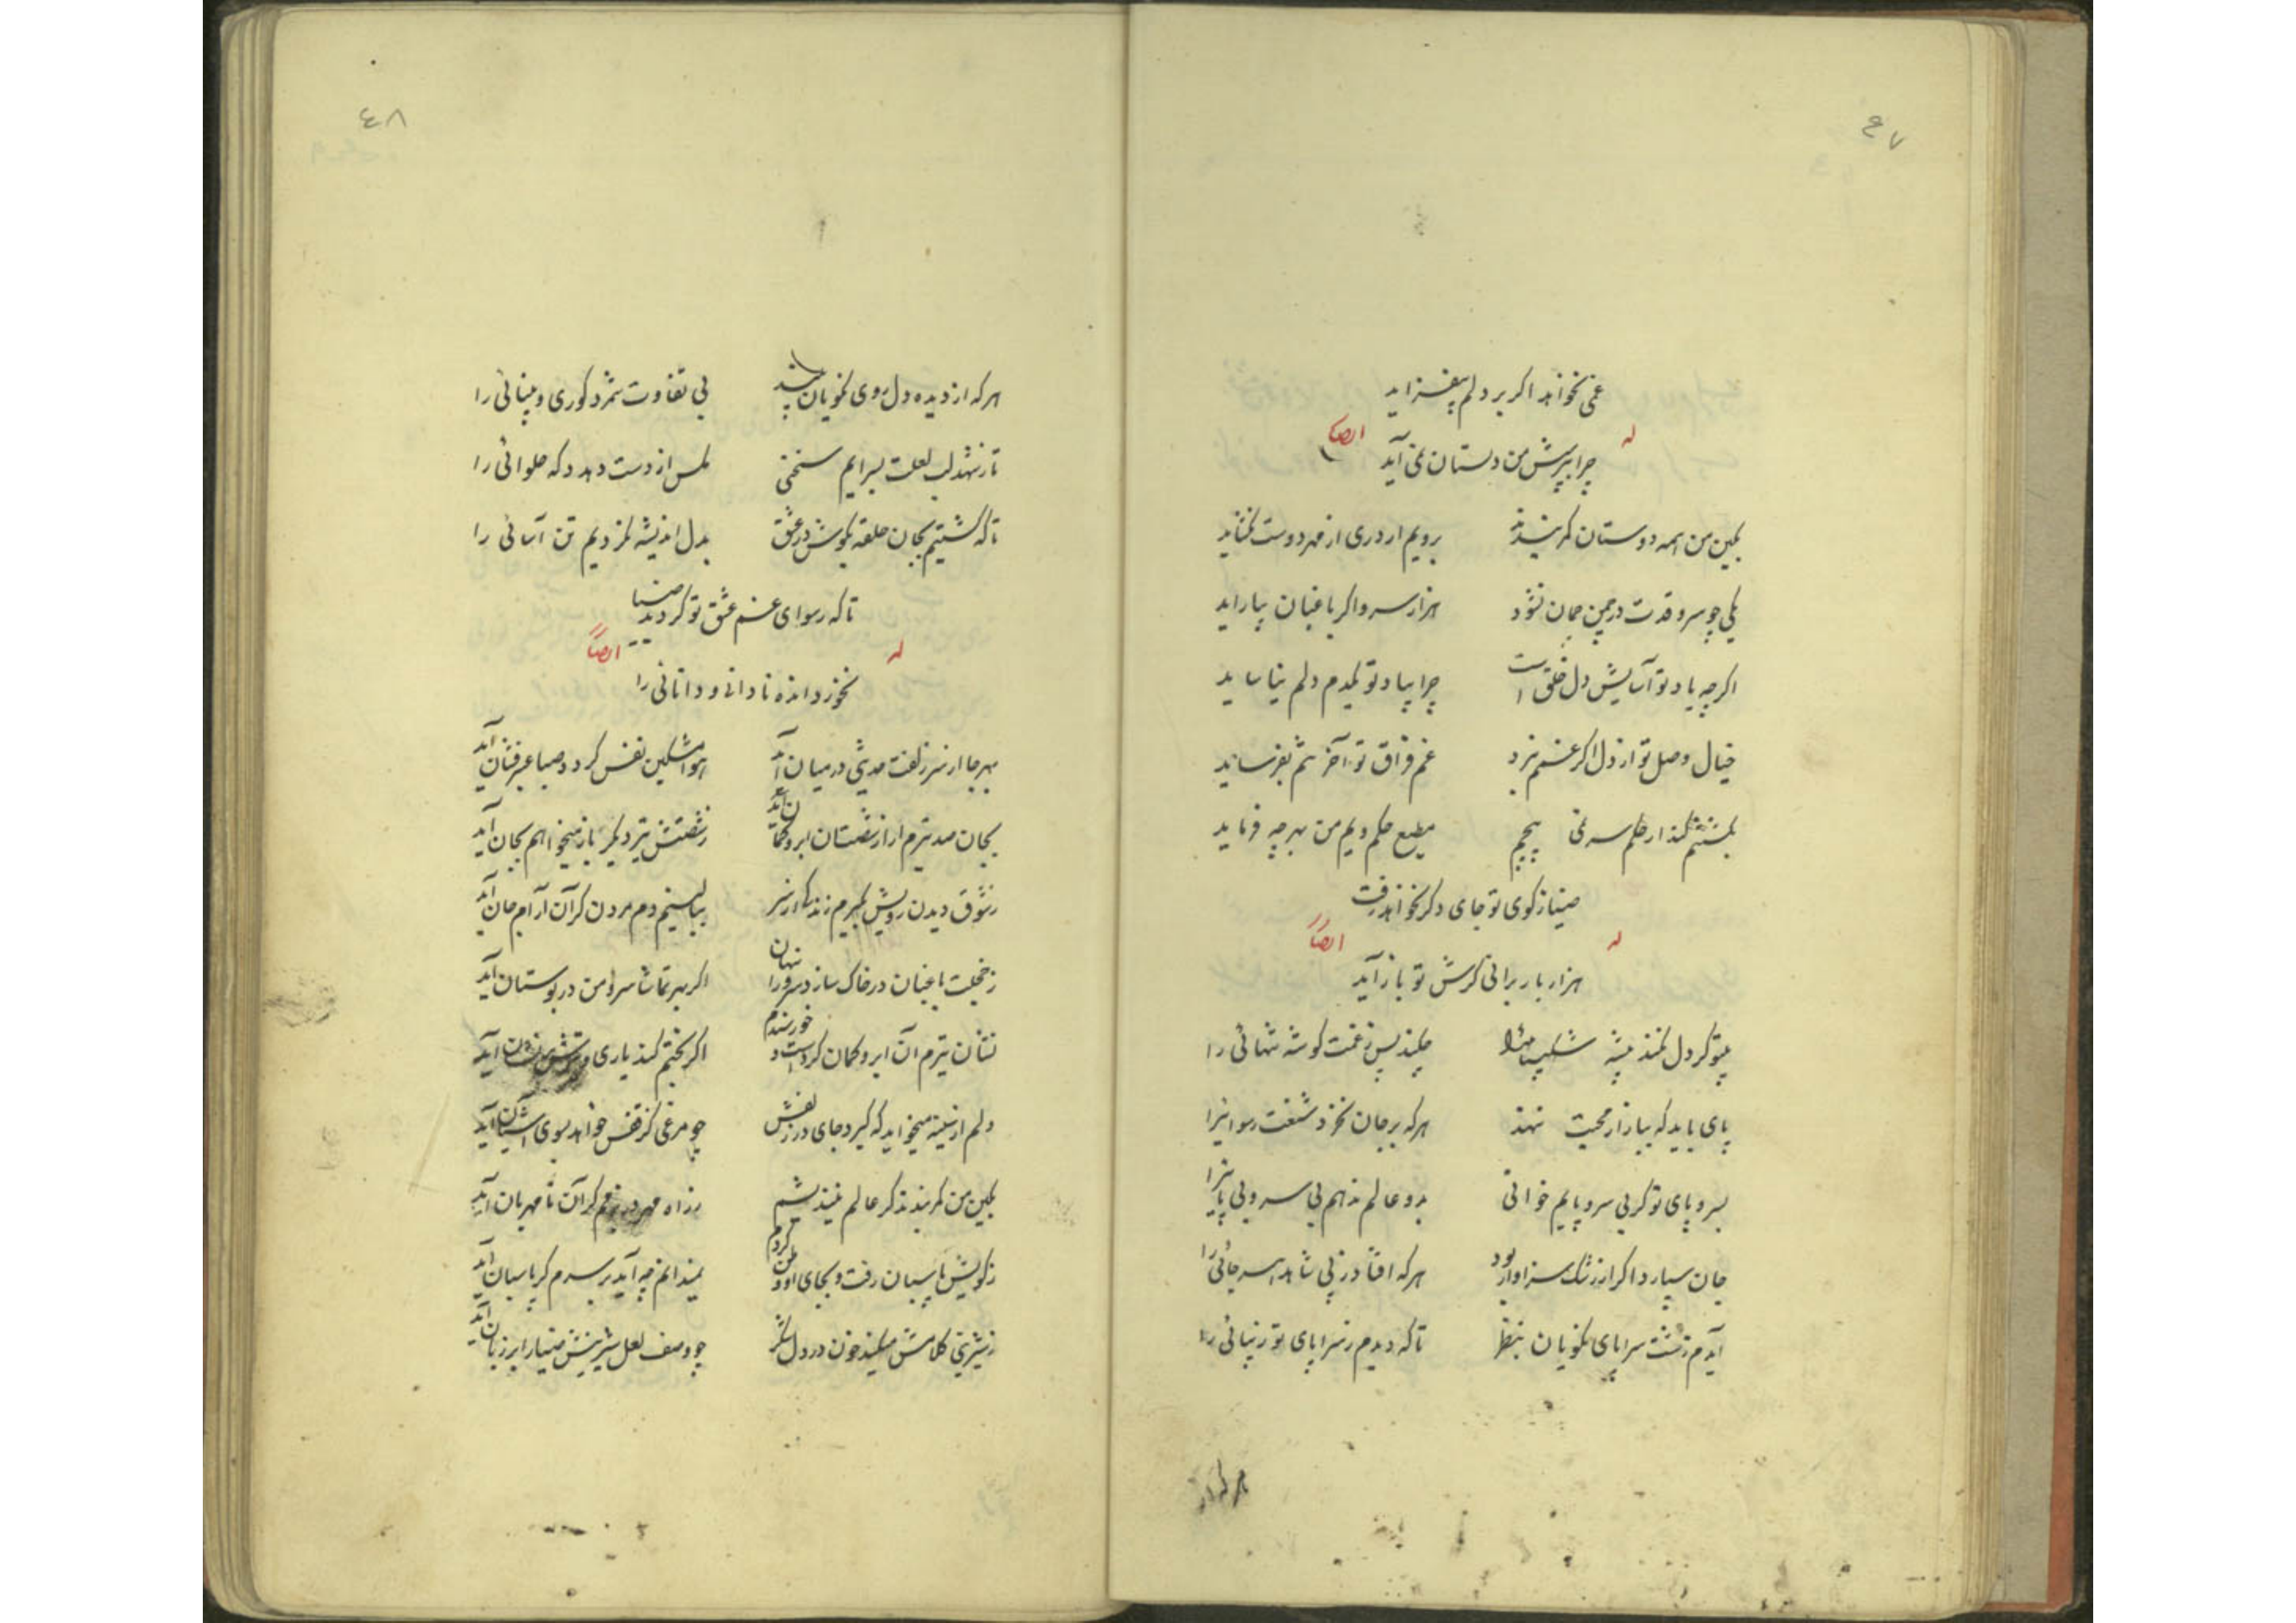 ٤٧
غمی نخواهد اگر بر دلم بیفزاید
له ایضاً
چرا بپرسش من دلستان نمی آید
بکین من همه دوستان کمر بندند برویم ار دری از مهر دوست نگشاید
یکی چو سرو قدت در چمن چمان نشود هزار سرو اگر باغبان بیاراید
اگرچه یاد تو آسایش دل خلق است چرا بیاد تو یکدم دلم نیاساید
خیال وصل تو از دل اگر غمم نبرد غم فراق تو آخر تنم بفرساید
بکشتنم کند ار حکم سر نمی پیچم مطیع حکم ویم من بهرچه فرماید
ضیا ز کوی تو جای دگر نخواهد رفت
له ایضاً
هزار بار برانی گرش تو باز آید
بیتو گر دل نکند پیشه شکیبائی را چکند پس ز غمت گوشه تنهائی را
پای باید که ببازار محبت ننهد هرکه بر جان نخرد شنعت رسوائیرا
بسر و پای تو گر بی سر و پایم خوانی بدو عالم ندهم بی سر و بی پائیرا
جان سپارد اگر از رشک سزاوار بود هرکه افتاد ز پی شاهد هر جائی را
آیدم زشت سراپای نکویان بنظر تا که دیدم ز سراپای تو زیبائی را
هرکه از
٤٨
هرکه از دیده دل روی نکویان بیند بی تفاوت شمرد کوری و بینائی را
تا ز شهد لب لعلت بسرایم سخنی مگس از دست دهد دکه حلوائی را
تا که گشتیم بجان حلقه بگوش در عشق بدل اندیشه نکردیم تن آسائی را
تا که رسوای غم عشق تو گردید ضیا
له ایضاً
نخرد اندۀ نادانی و دانائی را
بهر جا از سر زلفت حدیثی در میان آید هوا مشکین نفس گردد صبا عنبرفشان آید
بجان صد تیرم ار از شصت آن ابرو کمان آید ز شصتش تیر دیگر باز میخواهم بجان آید
ز شوق دیدن رویش بگیرم زندگی از سر ببالینم دم مردن گر آن آرام جان آید
ز خجلت باغبان در خاک سازد سرو را پنهان اگر بهر تماشا سرو من در بوستان آید
نشان تیرم آن ابرو کمان کرد است و خورسندم اگر بختم کند یاری و تیرش بر نشان آید
دلم از سینه میخواهد که گیرد جای در زلفش چو مرغی کز قفس خواهد بسوی آشیان آید
بکین من کمر بندد گر عالم نیندیشم ز راه مهر در بزمم گر آن نامهربان آید
ز کویش پاسبان رفت و بجای او وطن کردم نمیدانم چه آید بر سرم گر پاسبان آید
ز شیرینی کلامش میکند خون در دل شکر چو وصف لعل شیرینش ضیا را بر زبان آید